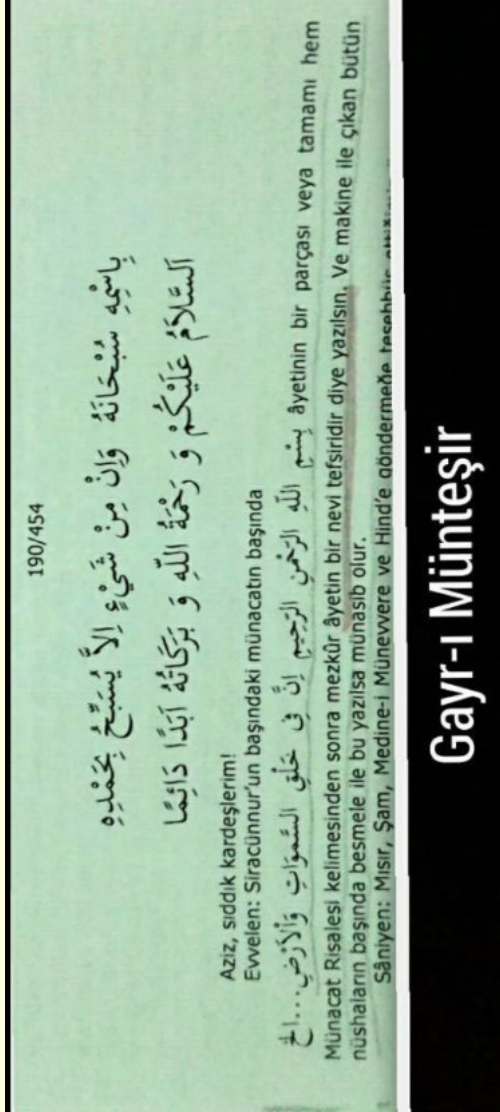 190/454
بِاسْمِهِ سُبْحَانَهُ وَاِنْ مِنْ شَيْءٍ اِلاَّ يُسَبِّحُ بِحَمْدِهِ
اَلسَّلاَمُ عَلَيْكُمْ وَ رَحْمَةُ اللّٰهِ وَ بَرَكَاتُهُ اَبَدًا دَائِمًا
Aziz, sıddık kardeşlerim!
Evvelen: Siracünnur'un başındaki münacatın başında
بِسْمِ اللّٰهِ الرَّحْمٰنِ الرَّحِيمِ اِنَّ فِى خَلْقِ السَّمٰوَاتِ وَاْلاَرْضِ...الخ âyetinin bir parçası veya tamamı hem
Münacat Risalesi kelimesinden sonra mezkûr âyetin bir nevi tefsiridir diye yazılsın. Ve makine ile çıkan bütün
nüshaların başında besmele ile bu yazılsa münasib olur.
Sâniyen: Mısır, Şam, Medine-i Münevvere ve Hind'e göndermeğe teşebbüs
Gayr-ı Münteşir